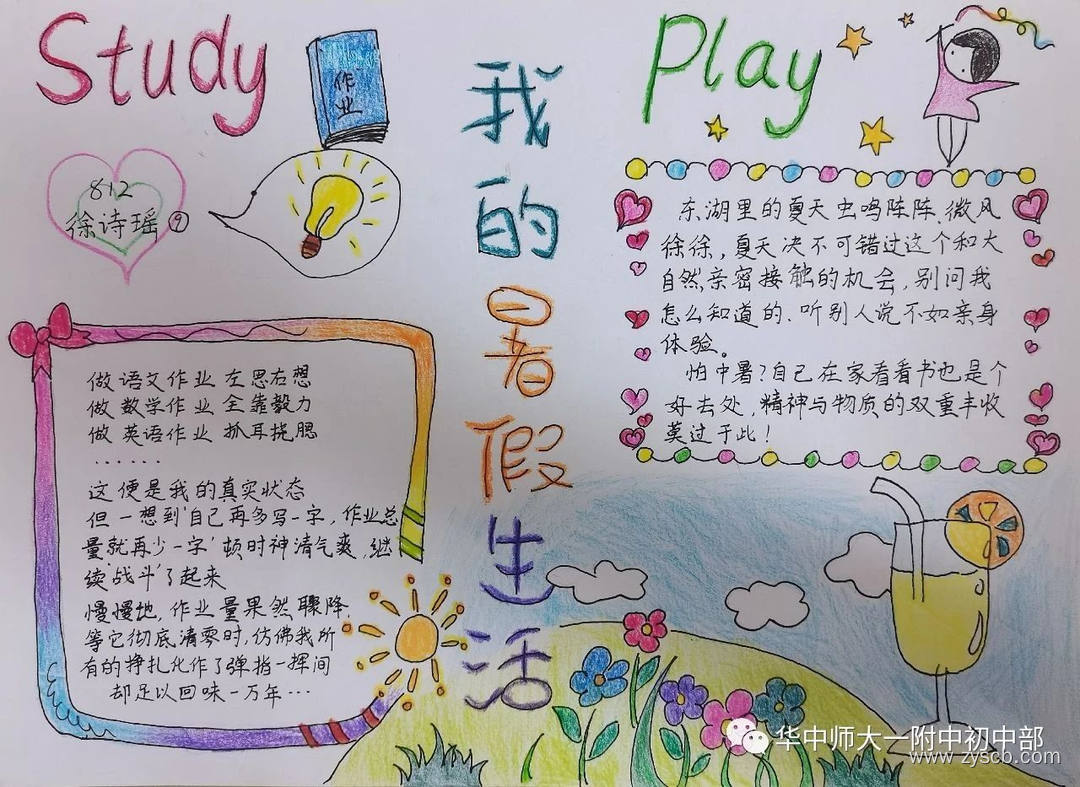 Study
作业
812
徐诗瑶 ⑨
做语文作业 左思右想
做数学作业 全靠毅力
做英语作业 抓耳挠腮
······
这便是我的真实状态
但一想到'自己再多写一字,作业总
量就再少一字'顿时神清气爽,继
续'战斗'了起来
慢慢地,作业量果然骤降,
等它彻底清零时,仿佛我所
有的挣扎化作了弹指一挥间
却足以回味一万年···
我的暑假生活
Play
东湖里的夏天虫鸣阵阵.微风
徐徐,夏天决不可错过这个和大
自然亲密接触的机会,别问我
怎么知道的.听别人说不如亲身
体验。
怕中暑?自己在家看看书也是个
好去处,精神与物质的双重丰收
莫过于此!
华中师大一附中初中部
www.zyscb.com